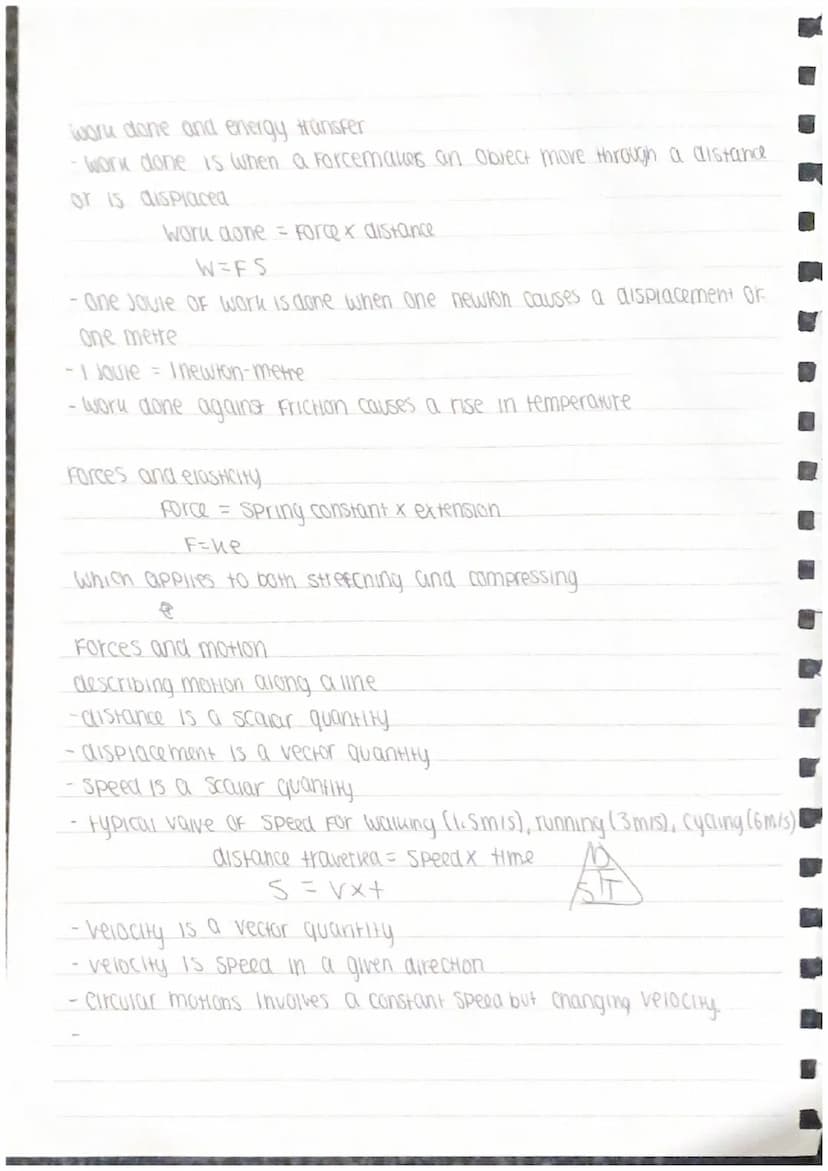 work done and energy transfer
- work done is when a force makes an object move through a distance
or is displaced
work done = force x distance
W=FS
- one joule of work is done when one newton causes a displacement of
one metre
- 1 joule = 1 newton-metre
- work done against friction causes a rise in temperature
Forces and elasticity
Force = spring constant x extension
F=ke
which applies to both stretching and compressing
Forces and motion
describing motion along a line
- distance is a scalar quantity
- displacement is a vector quantity
- speed is a scalar quantity
- typical value of speed for walking (1.5m/s), running (3m/s), cycling (6m/s)
distance travelled = speed x time
S = v x t
D
S T
- velocity is a vector quantity
- velocity is speed in a given direction
- circular motions involves a constant speed but changing velocity.
-